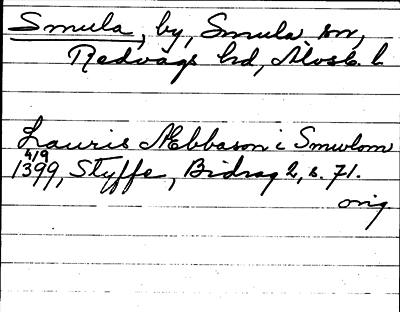 Smula, by, Smula sn,
Redvägs hd, Älvsb. l
Lauris Æbbason i Smwlom
4/9
1399, Styffe, Bidrag 2, s. 71.
orig